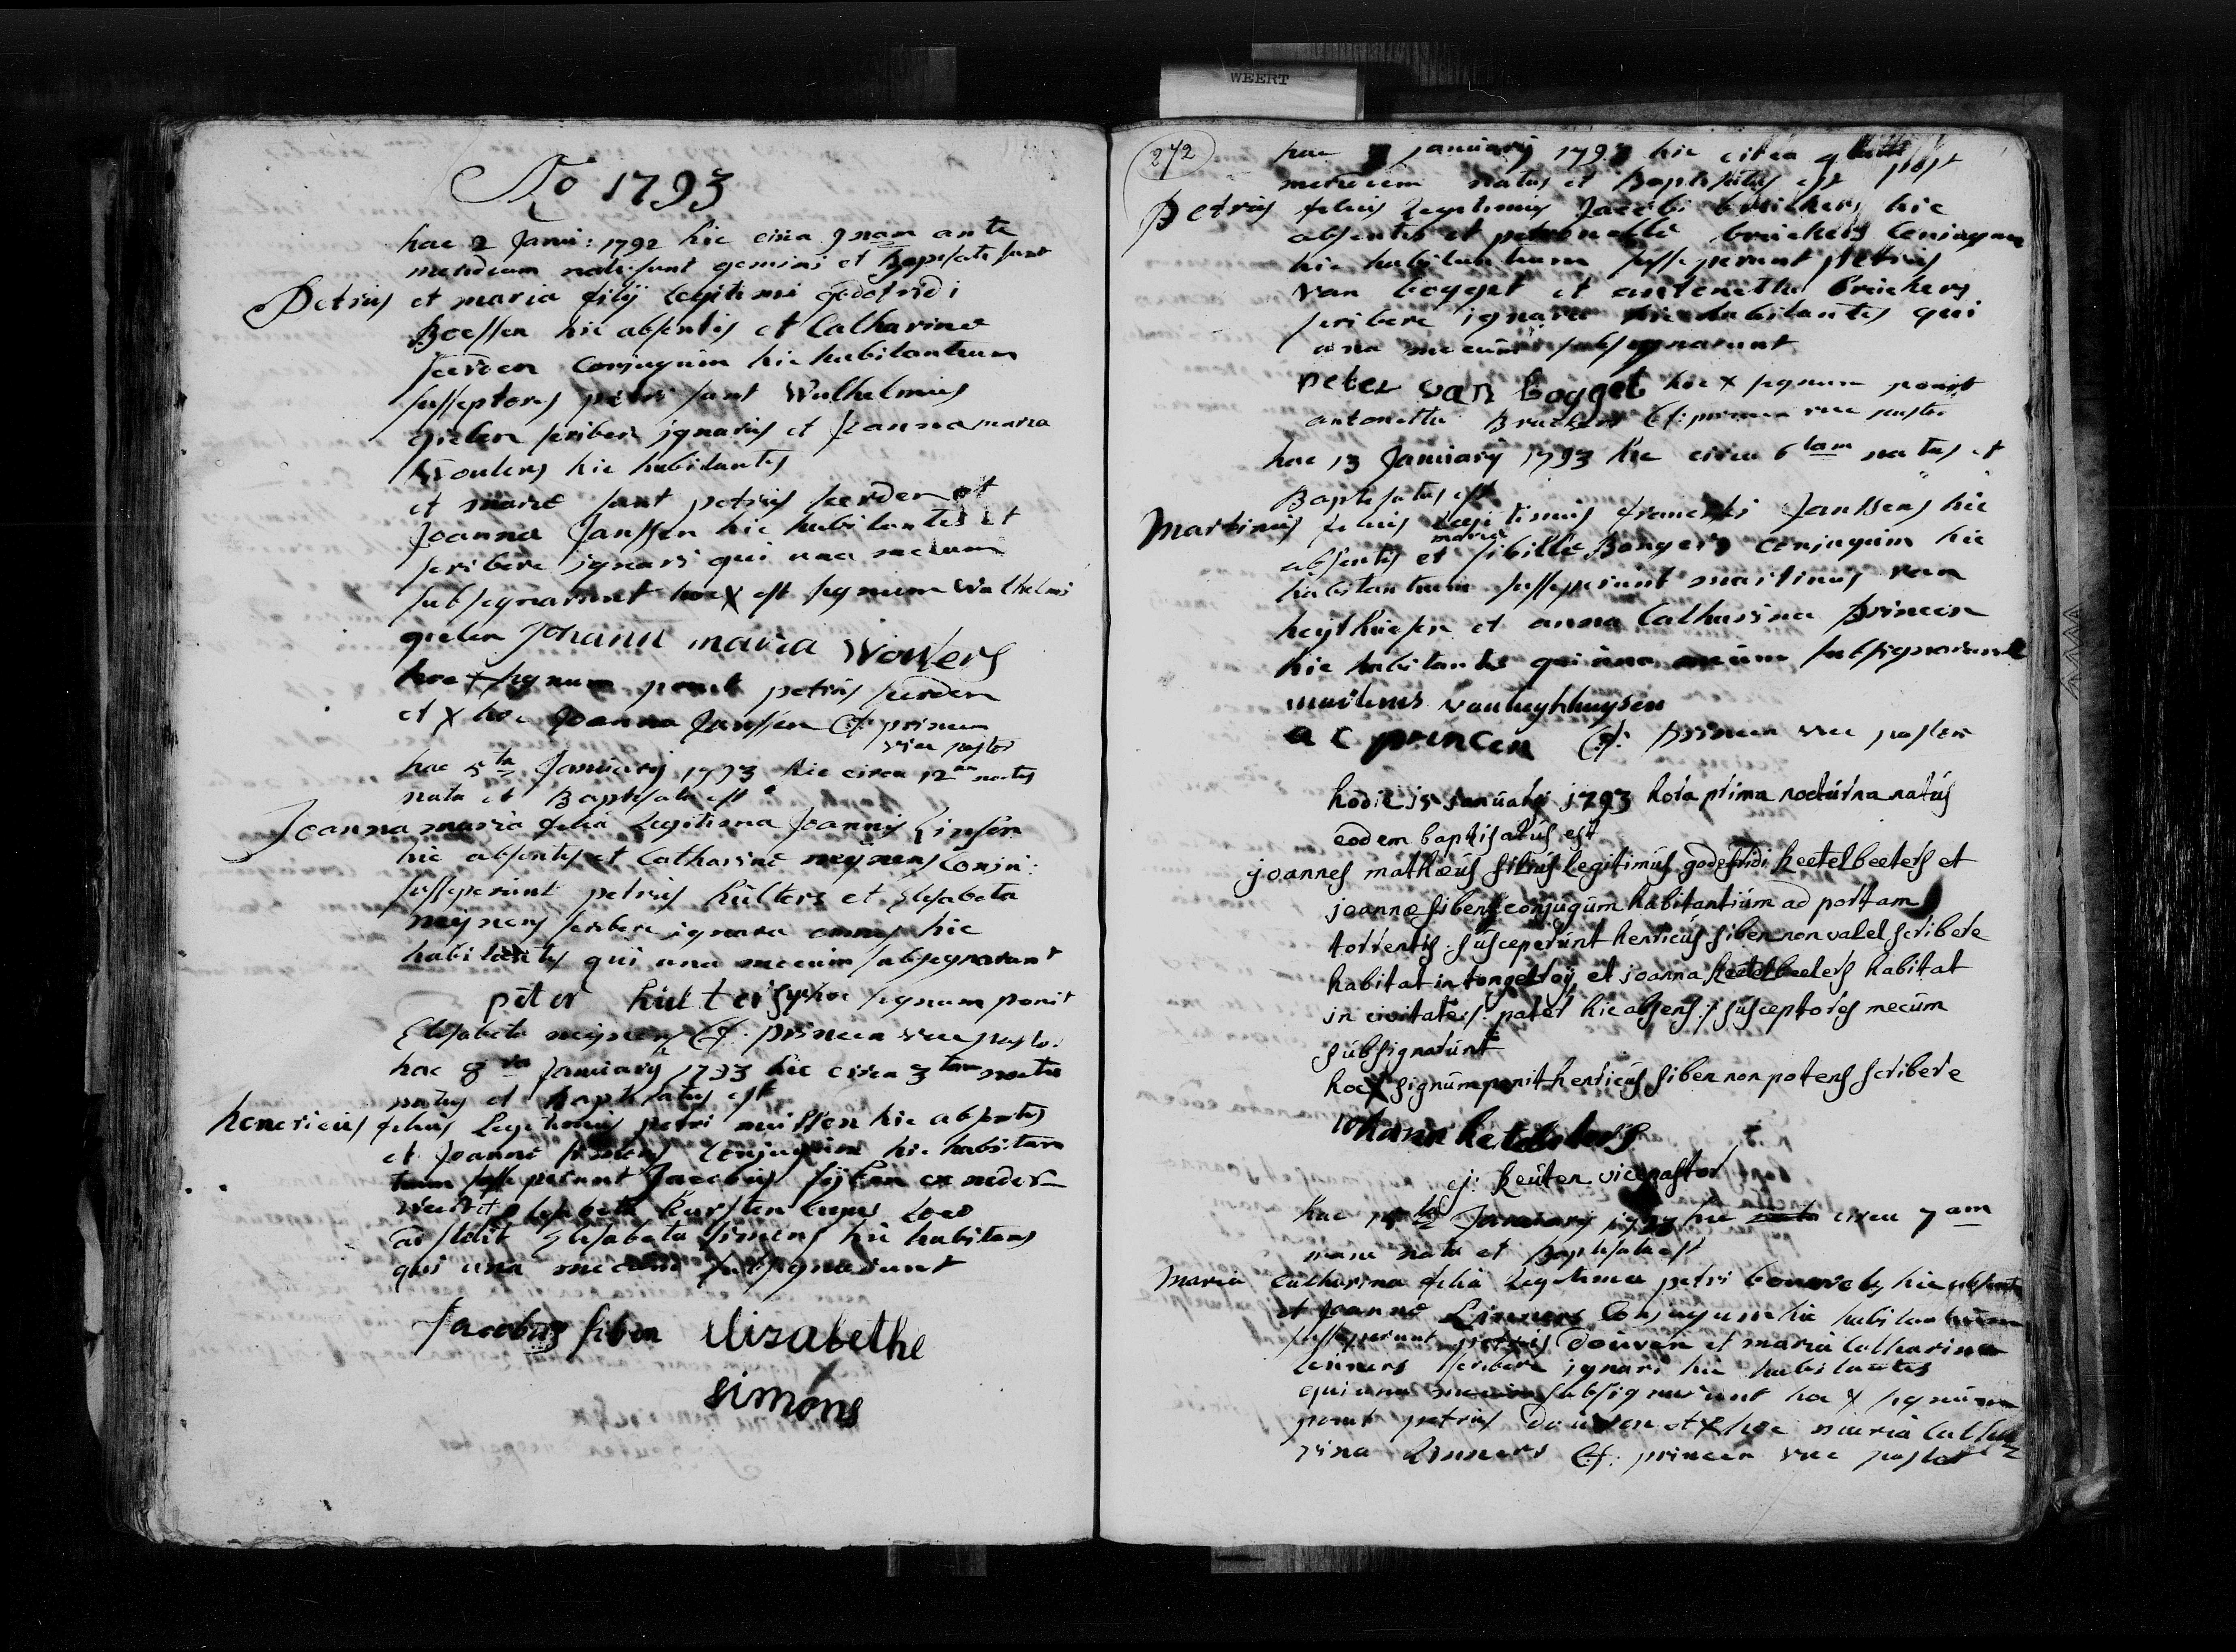 WEERT
Ao 1793
hac 2 Janu: 1792 hic circa 9nam ante
meridiem nati sunt gemini et Baptisati sunt
Petrus et maria filij legitimi godefridi
Boessen hic absentis et Catharinae
seerden Conjugum hic habitantium
susceptores petri sunt Wilhelmus
gielen scribere ignarus et Joanna maria
Wouters hic habitantes
et mariae sunt petrus seerden et
Joanna Janssen hic habitantes et
scribere ignari qui una mecum
subsignarunt hoc X est signum Wilhelmi
gielen Johanna maria Wouters
hoc + signum ponit petrus seerden
et X hoc Joanna Janssen CJ: princen
vice pastor
hac 5ta Januarij 1793 hic circa 12am noctis
nata et Baptisata est
Joanna maria filia Legitima Joannis Linsen
hic absentis et Catharinae neijnens Conju:
susceperunt petrus hulters et Elisabeta
neijnens scribere ignara omnes hic
habitantes qui una mecum subsignarunt
peter hulters X hoc signum ponit
Elisabeta neijnens CJ: princen vice pastor
hac 8va Januarij 1793 hic circa 3tiam noctis
natus et Baptisatus est
henericus filius Legitimus petri nuissen hic absentis
et Joannae simons Conjugum hic habitan
tium susceperunt Jacobus siben ex neder
weert et elisabeth kursten cujus loco
adstitit Elisabeta simens hic habitans
qui una mecum subsignarunt
Jacobus siben elizabethe
simons
272
hac januarij 1793 hic circa post
meridiem natus et Baptisatus est
Petrus filius Legitimus Jacobi bruekers hic
absentis et petronellae bruekers Conjugum
hic habitantium susceperunt petrus
van bogget et antonetta bruekers
scribere ignara hic habitantes qui
una mecum subsignarunt
peter van bogget hoc X signum ponit
antonetta Bruekers CJ: princen vice pastor
hac 13 Januarij 1793 hic circa 6tam natus et
Baptisatus est
Martinus filius Legitimus francisci Janssens hic
absentis et maria sibillae Bongers Conjugum hic
habitantium susceperunt martinus van
heythuisen et anna Catharina Princen
hic habitantes qui una mecum subsignarunt
martinus van heythuysen
a c princen CJ: Princen vice pastor
hodie 15 januarij 1793 hora prima nocturna natus
eodem baptisatus est
joannes mathaeus filius legitimus godefridi keetelbeeters et
joannae siben conjugum habitantium ad portam
torrentis. susceperunt henricus siben non valet scribere
habitat in tongelroij et joanna keetelbeeters habitat
in civitate /: pater hic absens :/ susceptores mecum
subsignarunt
hoc X signum ponit henricus siben non potens scribere
johanna ketelbeters
cj: keuten vicepastor
hac 15ta Januarij 1793 hic circa 7am
mane nata et Baptisata est
Maria catharina filia Legitima petri hic absentis
et Joannae Linners Conjugum hic habitantium
susceperunt petrus douven et maria catharina
Linners scribere ignari hic habitantes
qui una mecum subsignarunt hoc X signum
ponit petrus douven et X hoc maria catha
rina Linners CJ: princen vice pastor